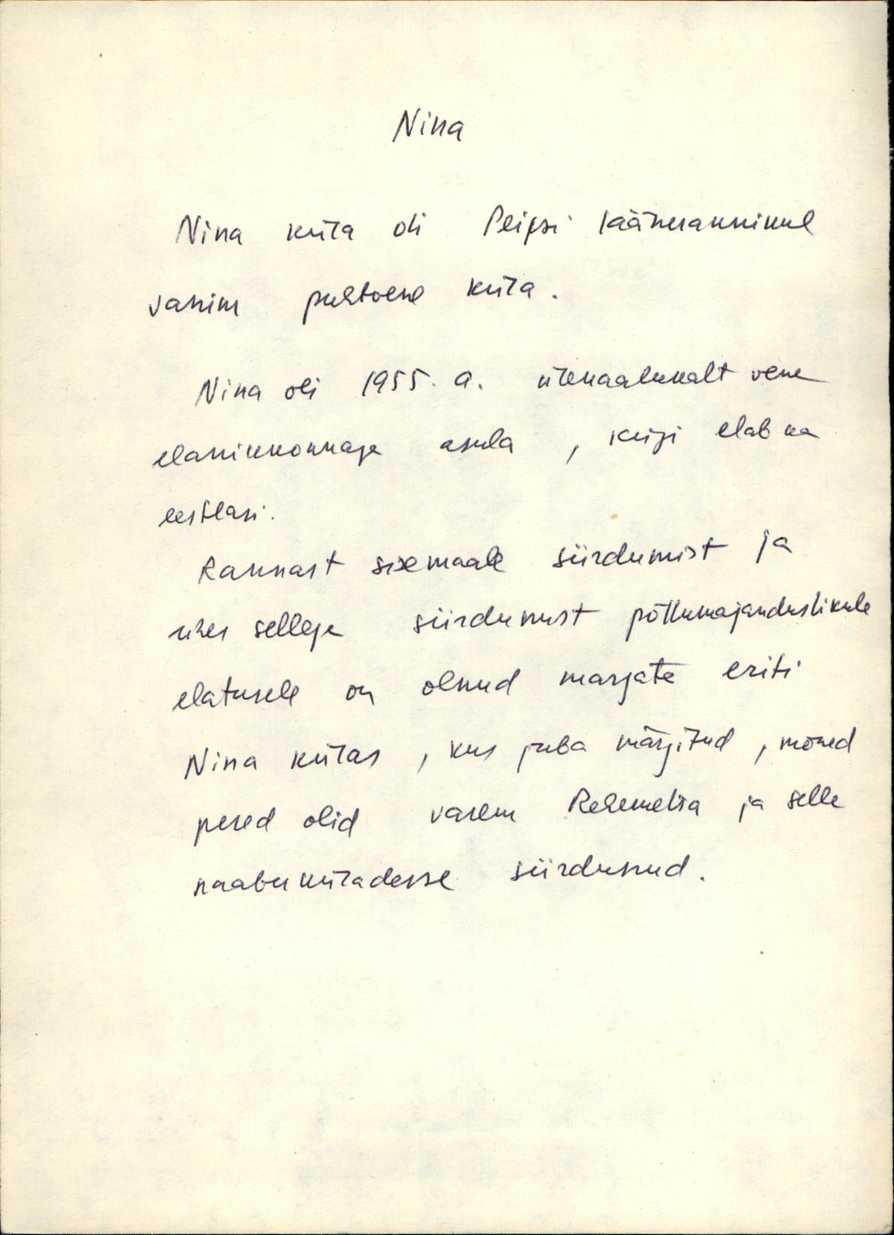 Nina
Nina küla oli Peipsi läänerannikul
vanim puhtvene küla.
Nina oli 1955. a. ülekaalukalt vene
elanikkonnaga asula, kuigi elab ka
eestlasi.
Rannast sisemaale siirdumist ja
ühes sellega siirdumist põllumajanduslikule
elatusele on olnud margata eriti
Nina külas, kus juba märgitud, mõned
pered olid varem Rehemetsa ja selle
naaberküladesse siirdunud.